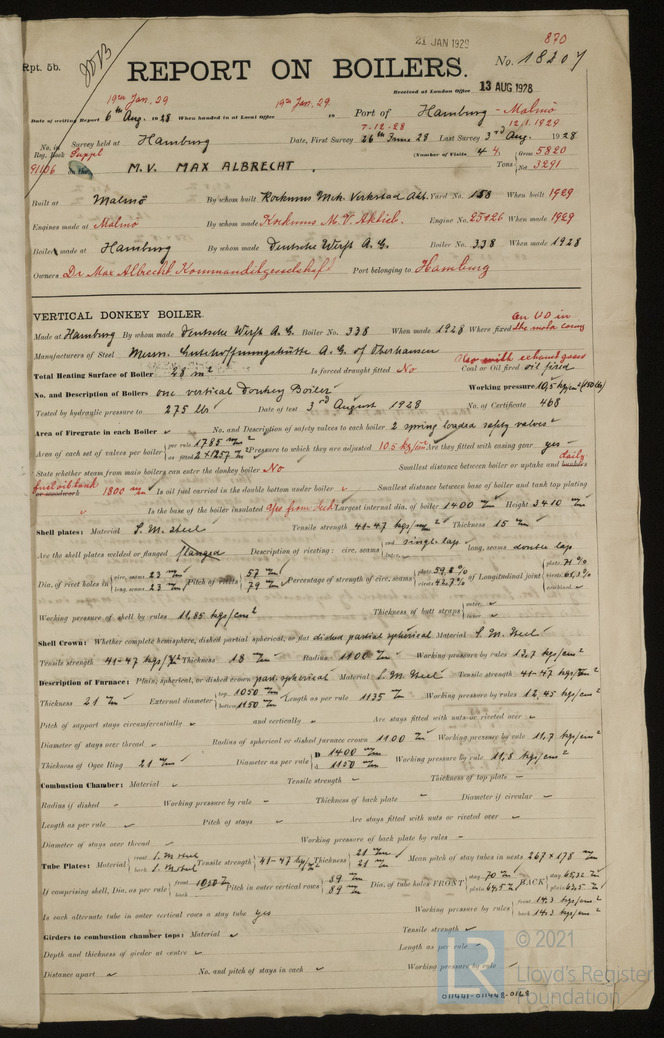 21 JAN 1929 870
Rpt. 5b.
REPORT ON BOILERS. No. 18207
Received at London Office 13 AUG 1928
19th Jan. 29 19th Jan. 29
Date of writing Report 6th Aug. 1928 When handed in at Local Office 19 Port of Hamburg - Malmö
7-12-28 12/1.1929
No. in Survey held at Hamburg Date, First Survey 26th June 28 Last Survey 3rd Aug. 1928
Reg. Book Suppl (Number of Visits 4 4. Gross 5820
91106 on the M.V. MAX ALBRECHT. Tons Net 3291
Built at Malmö By whom built Kockums Mek. Verkstad Akt. Yard No. 158 When built 1929
Engines made at Malmö By whom made Kockums M. V. Aktieb. Engine No. 25+26 When made 1929
Boiler made at Hamburg By whom made Deutsche Werft A.G. Boiler No. 338 When made 1928
Owners Dr Max Albrecht Kommanditgesellschaft Port belonging to Hamburg
VERTICAL DONKEY BOILER. on UD in
Made at Hamburg By whom made Deutsche Werft A.G. Boiler No. 338 When made 1928 Where fixed the motor casing
Manufacturers of Steel Messrs. Gutehoffnungshütte A.G. of Oberhausen
also with exhaust gases
Total Heating Surface of Boiler 28 m² Is forced draught fitted No Coal or Oil fired oil fired
No. and Description of Boilers one vertical Donkey Boiler Working pressure 10,5 kg/cm² (150 lbs)
Tested by hydraulic pressure to 275 lbs Date of test 3rd August 1928 No. of Certificate 468
Area of Firegrate in each Boiler ✓ No. and Description of safety valves to each boiler 2 spring loaded safety valves
Area of each set of valves per boiler per rule 1785 mm² as fitted 2 x 1257 mm² Pressure to which they are adjusted 10.5 kg/cm² Are they fitted with easing gear yes
State whether steam from main boilers can enter the donkey boiler No Smallest distance between boiler or uptake and bunkers daily
fuel oil tank or woodwork 1800 mm Is oil fuel carried in the double bottom under boiler ✓ Smallest distance between base of boiler and tank top plating
✓ Is the base of the boiler insulated Largest internal dia. of boiler 1400 mm Height 3410 mm
Shell plates: Material S.M. steel Tensile strength 41-47 kgs/mm² Thickness 15 mm
Are the shell plates welded or flanged flanged Description of riveting: circ. seams end single lap inter. ✓ long. seams double lap
Dia. of rivet holes in circ. seams 23 mm long. seams 23 mm Pitch of rivets 57 mm 79 mm Percentage of strength of circ. seams plate 59,8 % rivets 42.7 % of Longitudinal joint plate 71 % rivets 61,3 % combined ✓
Working pressure of shell by rules 11,85 kgs/cm² Thickness of butt straps outer ✓ inner ✓
Shell Crown: Whether complete hemisphere, dished partial spherical, or flat dished partial spherical Material S.M. steel
Tensile strength 41-47 kgs/mm² Thickness 18 mm Radius 1100 mm Working pressure by rules 12,7 kgs/cm²
Description of Furnace: Plain, spherical, or dished crown part. spherical Material S.M. steel Tensile strength 41-47 kgs/mm²
Thickness 21 mm External diameter top 1050 mm bottom 1150 mm Length as per rule 1135 mm Working pressure by rules 12,45 kgs/cm²
Pitch of support stays circumferentially ✓ and vertically ✓ Are stays fitted with nuts or riveted over ✓
Diameter of stays over thread ✓ Radius of spherical or dished furnace crown 1100 mm Working pressure by rule 11,7 kgs/cm²
Thickness of Ogee Ring 21 mm Diameter as per rule D 1400 mm d 1150 mm Working pressure by rule 11,8 kgs/cm²
Combustion Chamber: Material ✓ Tensile strength ✓ Thickness of top plate —
Radius if dished — Working pressure by rule — Thickness of back plate ✓ Diameter if circular ✓
Length as per rule ✓ Pitch of stays ✓ Are stays fitted with nuts or riveted over ✓
Diameter of stays over thread ✓ Working pressure of back plate by rules —
Tube Plates: Material front S.M. steel back S.M. steel Tensile strength 41-47 kg/mm² Thickness 21 mm 21 mm Mean pitch of stay tubes in nests 267 x 178 mm
If comprising shell, Dia. as per rule front 1050 mm back Pitch in outer vertical rows 89 mm 89 mm Dia. of tube holes FRONT stay 70 mm plain 64,5 mm BACK stay 65,32 mm plain 63,5 mm
Is each alternate tube in outer vertical rows a stay tube yes Working pressure by rules front 14.3 kgs/cm² back 14.3 kgs/cm²
Girders to combustion chamber tops: Material ✓ Tensile strength ✓
Depth and thickness of girder at centre ✓ Length as per rule ✓
Distance apart ✓ No. and pitch of stays in each ✓ Working pressure by rule ✓
© 2021
Lloyd's Register
Foundation
011441-011448-0168